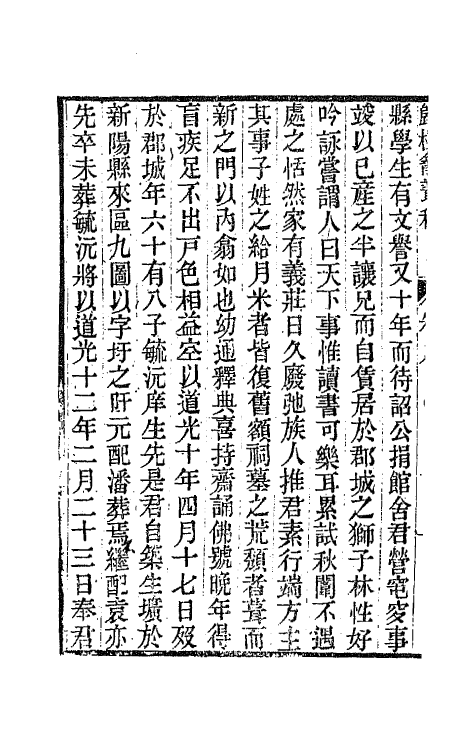 縣學生有文譽又十年而待詔公捐館舍君營窀穸事
竣以已産之半讓兄而自賃居於郡城之獅子林性好
吟詠嘗謂人曰天下事惟讀書可樂耳累試秋闈不遇
處之恬然家有義莊日久廢弛族人推君素行端方主
其事子姓之給月米者皆復舊額祠墓之荒頽者葺而
新之門以內翕如也幼通釋典喜持齋誦佛號晚年得
盲疾足不出戸色相益空以道光十年四月十七日殁
於郡城年六十有八子毓沅庠生先是君自築生壙於
新陽縣來區九圖以字圩之阡元配潘葬焉繼配袁亦
先卒未葬毓沅將以道光十二年二月二十三日奉君